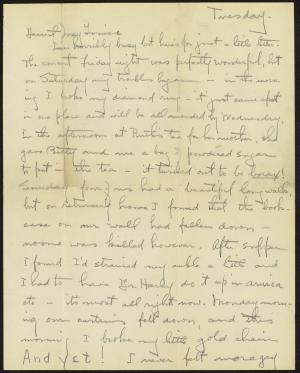 Tuesday.
Dearest
I'm horribly busy but here's for just a little letter.
The concert Friday night was perfectly wonderful, but
on Saturday my troubles began — in the morn-
ing I broke my diamond ring — it just came apart
in one place and will be all mended by Wednesday.
In the afternoon at Ruth's tea for her mother, she
gave and me a bag of powdered sugar
to put in the tea — it turned out to be borax!
Sunday four of us had a beautiful long walk,
but on returning home I found that the book-
case on our wall had fallen down —
no one was killed however. After supper
I found I'd strained my ankle a little and
I had to have Dr. do it up in arnica
etc — it's most all right now. Monday morn-
ing our curtains fell down, and this
morning I broke my little gold chain
And yet! I never felt more gay